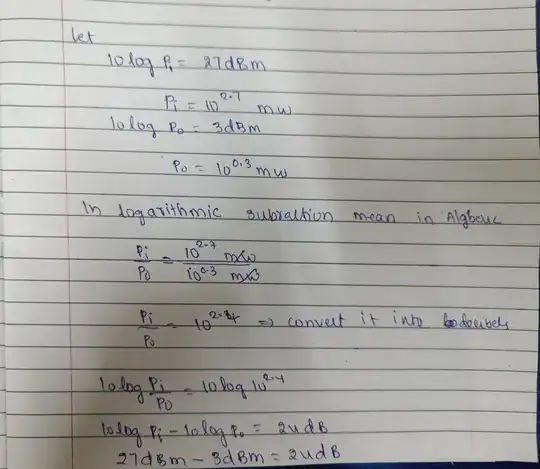 let
10 log Pi = 27dBm
Pi = 10^2.7 mw
10 log Po = 3dBm
Po = 10^0.3 mw
In logarithmic subraction mean in Algbeuc
Pi/Po = 10^2.7 mw / 10^0.3 mw
Pi/Po = 10^2.4 ⇒ convert it into decibels
10 log Pi/Po = 10 log 10^2.4
10 log Pi - 10 log Po = 24 dB
27dBm - 3dBm = 24dB